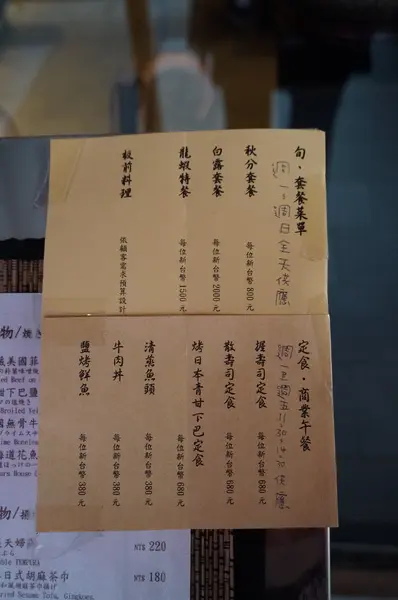 旬・套餐菜單
週一~週日全天侯應
秋分套餐 每位新台幣 800 元
白露套餐 每位新台幣 2000 元
龍蝦特餐 每位新台幣 1500 元
板前料理 依顧客需求預算設計
定食・商業午餐
週一至週五11:30~14:00侯應
握壽司定食 每位新台幣 680 元
散壽司定食 每位新台幣 680 元
烤日本青甘下巴定食 每位新台幣 680 元
清蒸魚頭 每位新台幣 380 元
牛肉丼 每位新台幣 380 元
鹽烤鮮魚 每位新台幣 380 元
物/燒
美國菲
甘下巴鹽
國無骨牛
海道花魚
物/
天婦
NT$ 220
日式胡麻茶巾
NT$ 180